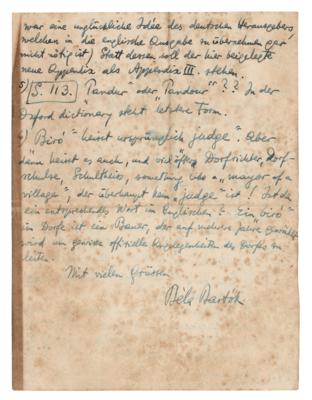 war eine unglückliche Idee des deutschen Herausgebers,
welchen in die englische Ausgabe zu übernehmen gar
nicht nötig ist.) Statt dessen soll der hier beigelegte
neue Appendix als Appendix III. stehen.
5) S. 113. "Pandur" oder "Pandour"?? In der
Oxford dictionary steht letztere Form.
) "Biró" heisst ursprünglich "judge". Aber
dann heisst es auch, und viel öfter Dorfrichter, Dorf-
schulze, Schultheiss, something like a "mayor of a
village", der überhaupt kein "judge" ist! Ist da
ein entsprechendes Wort im Englischen? - Ein "biró"
im Dorfe ist ein Bauer, der auf mehrere Jahre gewählt
wird um gewisse offizielle Angelegenheiten des Dorfes zu
leiten.
Mit vielen Grüssen
Béla Bartók